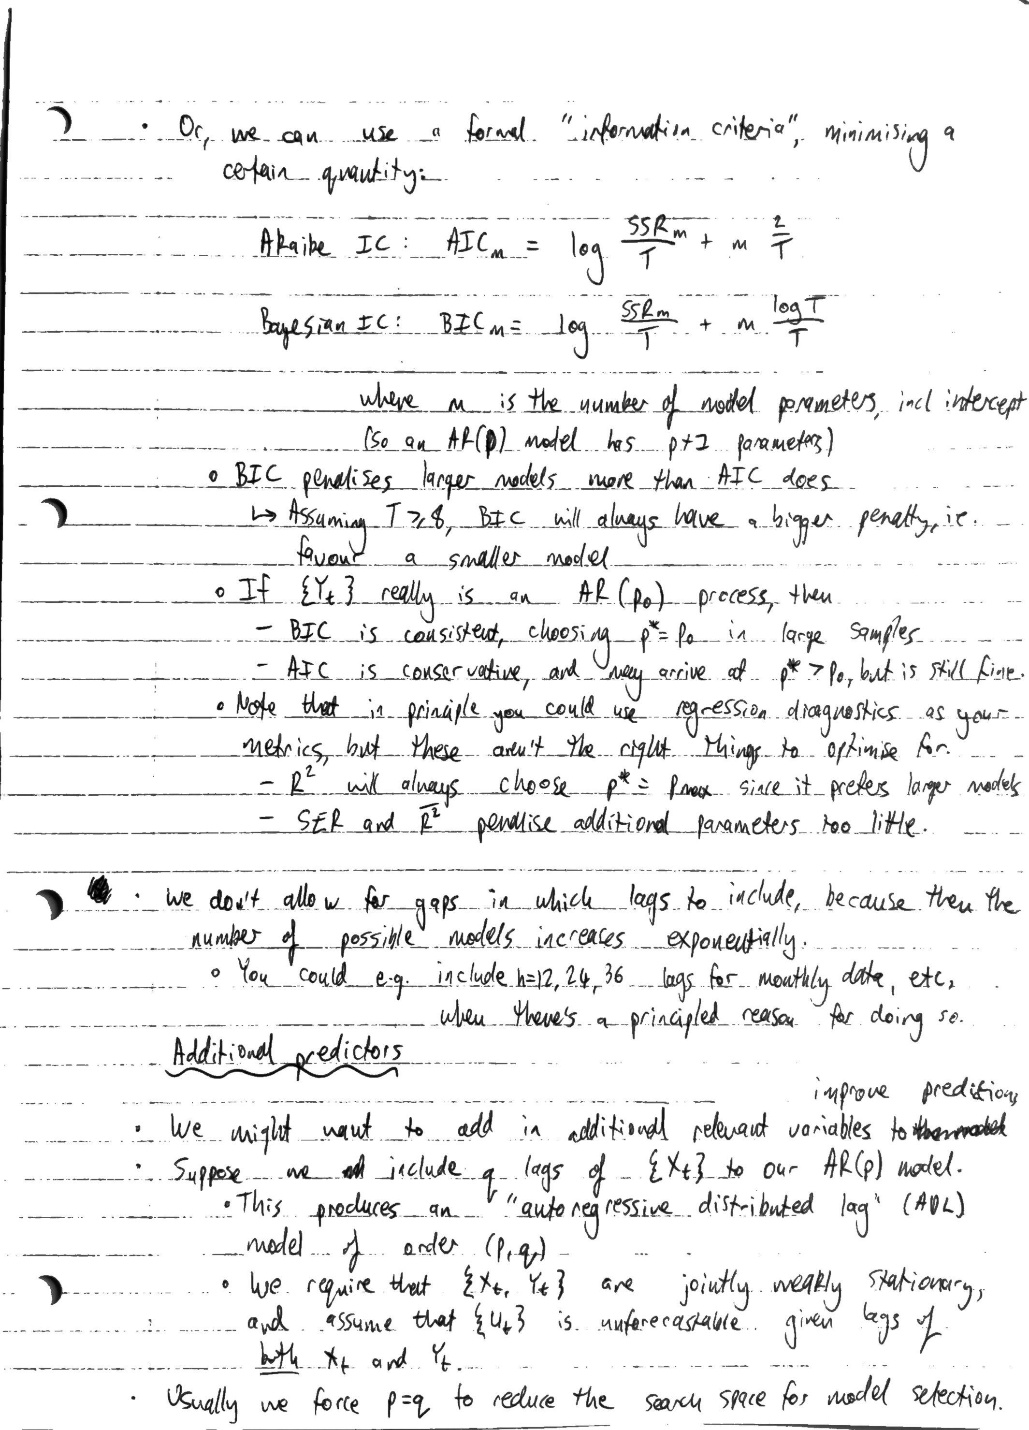 · Or, we can use a formal "information criteria", minimising a
certain quantity:
Akaike IC: AIC_m = log SSR_m/T + m 2/T
Bayesian IC: BIC_m = log SSR_m/T + m log T/T
where m is the number of model parameters, incl intercept
(so an AR(p) model has p+1 parameters)
∘ BIC penalises larger models more than AIC does
↳ Assuming T ≥ 8, BIC will always have a bigger penalty, ie.
favour a smaller model
∘ If {Y_t} really is an AR(p_0) process, then
– BIC is consistent, choosing p* = p_0 in large samples
– AIC is conservative, and may arrive at p* > p_0, but is still fine.
∘ Note that in principle you could use regression diagnostics as your
metrics, but these aren't the right things to optimise for.
– R² will always choose p* = p_max since it prefers larger models
– SER and R̄² penalise additional parameters too little.
· We don't allow for gaps in which lags to include, because then the
number of possible models increases exponentially.
∘ You could e.g. include h=12, 24, 36 lags for monthly data, etc,
when there's a principled reason for doing so.
Additional predictors
improve predictions
· We might want to add in additional relevant variables to
· Suppose we include q lags of {X_t} to our AR(p) model.
∘ This produces an "autoregressive distributed lag" (ADL)
model of order (p,q)
∘ We require that {X_t, Y_t} are jointly weakly stationary,
and assume that {u_t} is unforecastable given lags of
both X_t and Y_t.
· Usually we force p=q to reduce the search space for model selection.